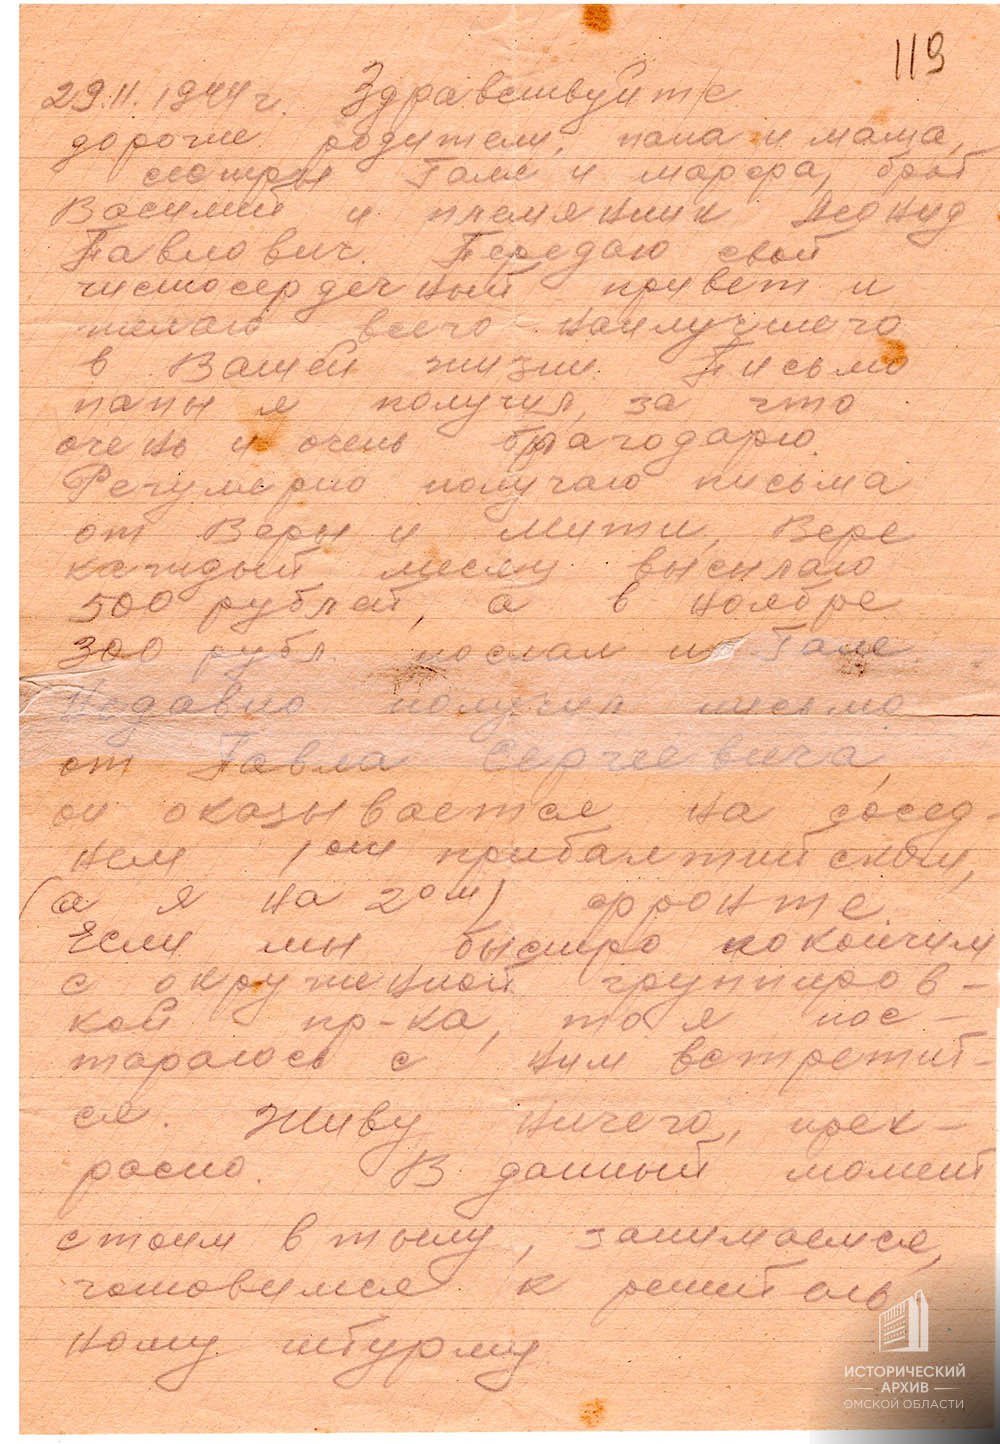 119
29.11.1944 г. Здравствуйте
дорогие родители, папа и мама,
сестры Галя и Марфа, брат
Василий и племянник Леонид
Павлович. Передаю свой
чистосердечный привет и
желаю всего наилучшего
в Вашей жизни. Письмо
папы я получил, за что
очень и очень благодарю.
Регулярно получаю письма
от Веры и Мити, Вере
каждый месяц высылаю
500 рублей, а в ноябре
300 рубл. послал и Гале.
Недавно получил письмо
от Павла Сергеевича,
он оказывается на сосед-
нем 1ом прибалтийском,
(а я на 2ом) фронте.
Если мы быстро покончим
с окруженной группиров-
кой пр-ка, то я пос-
тараюсь с ним встретит-
ся. Живу ничего, прек-
расно. В данный момент
стоим в тылу, занимаемся,
готовимся к решитель
ному штурму
ИСТОРИЧЕСКИЙ
АРХИВ
ОМСКОЙ ОБЛАСТИ